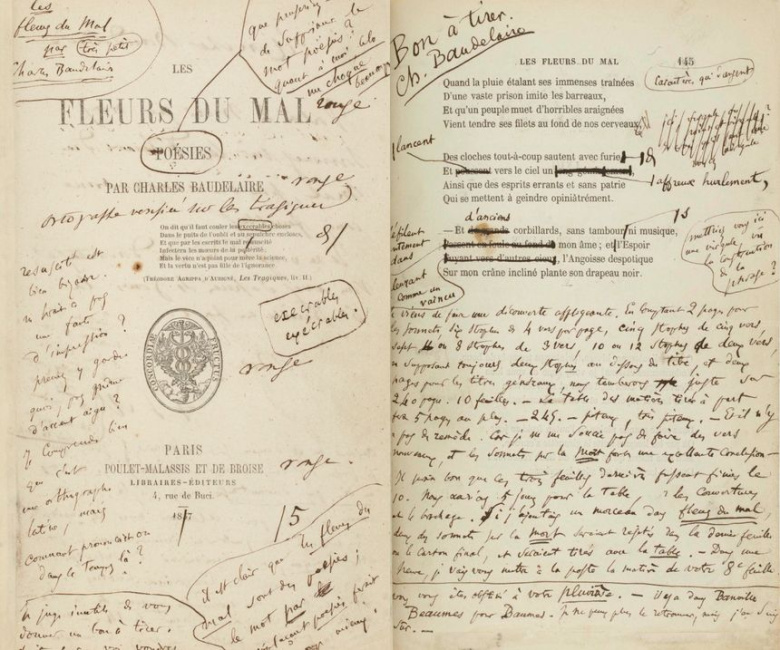 Les
fleurs du Mal
par très petit
Charles Baudelaire
que
de supprimer le
mot poésies ?
quant à
LES
FLEURS DU MAL
rouge
POÉSIES
PAR CHARLES BAUDELAIRE
rouge
orthographe vérifiée sur les tragiques
On dit qu'il faut couler les execrables choses
Dans le puits de l'oubli et au sepulchre encloses,
Et que par les escrits le mal resuscité
Infectera les mœurs de la postérité;
Mais le vice n'a point pour mère la science,
Et la vertu n'est pas fille de l'ignorance.
8/
(THÉODORE AGRIPPA D'AUBIGNÉ, Les Tragiques, liv. II.)
resuscité est
bien bizarre.
n'y aurait-il pas
une faute
d'impression ?
prenez y garde.
quoi, pas même
d'accent aigu ?
Je comprends bien
que c'est
une orthographe
latine, mais
comment prononçait-on
dans le temps là ?
execrables
exécrables.
rouge
CONCORDIÆ FRUCTUS
PARIS
POULET-MALASSIS ET DE BROISE
rouge.
LIBRAIRES-ÉDITEURS
4, rue de Buci.
1857
5
Je juge inutile de vous
donner un bon à tirer.
il est clair que les fleurs du
mal sont des poésies ;
le mot par
Bon à tirer.
Ch. Baudelaire
LES FLEURS DU MAL
145
Quand la pluie étalant ses immenses traînées
D'une vaste prison imite les barreaux,
Et qu'un peuple muet d'horribles araignées
Vient tendre ses filets au fond de nos cerveaux,
lancent
Des cloches tout-à-coup sautent avec furie
Et poussent vers le ciel un long gémissement,
affreux hurlement,
Ainsi que des esprits errants et sans patrie
Qui se mettent à geindre opiniâtrément.
d'anciens
— Et de grands corbillards, sans tambour ni musique,
Passent en foule au fond de mon âme ; et l'Espoir
Fuyant vers d'autres cieux, l'Angoisse despotique
Sur mon crâne incliné plante son drapeau noir.
défilent
lentement
dans
comme un
vaincu
mettriez-vous ici
une virgule,
la construction
de la
phrase ?
Je viens de faire une découverte affligeante. En comptant 2 pages pour
les sonnets, six strophes de 4 vers par page, cinq strophes de cinq vers,
sept ou 8 strophes de 3 vers, 10 ou 12 strophes de deux vers,
en supposant toujours deux strophes au dessous du titre, et deux
pages pour les titres généraux, nous tomberons juste sur
240 pages. 10 feuilles. — La table des matières tirée à part
5 pages au plus. — 245. — piteux, très piteux. — Et il n'y
a pas de remède. Car je ne me soucie pas de faire des vers
nouveaux, et les sonnets sur la Mort font une excellente conclusion —
bon que ces trois feuilles dernières fussent finies le
10. 5 jours pour la table, les couvertures
et le brochage. Si j'ajoutais un morceau dans fleurs du mal
deux des sonnets sur la mort seraient rejetés dans la demie feuille
ou le carton final, et seraient tirés avec la table. — Dans une
heure, je vais vous mettre à la poste la matière de votre 8e feuille
votre pluriose. — Il y a dans Banville
Beaumes pour Baumes. Je ne peux plus le retrouver, mais j'en suis
sûr. —